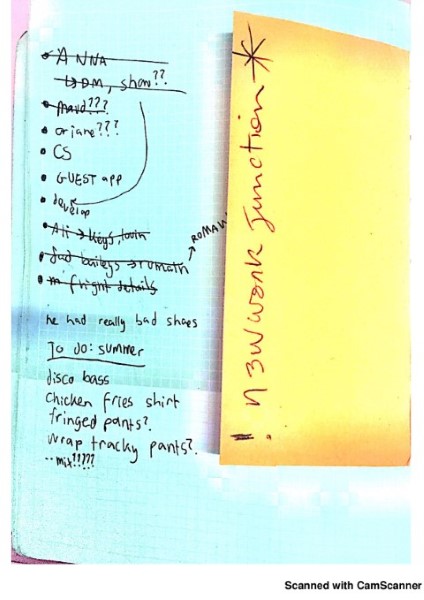 ANNA
↳ DM, show??
• Mard???
• oriane???
• CS
• GUEST app
• develop
• Ali → keys, login
• dad baileys →
ROMAN
• m flight details
he had really bad shoes
To do: summer
disco bass
Chicken fries shirt
fringed pants?
wrap tracky pants?
mix?????
! n3w wonk Junction *
Scanned with CamScanner